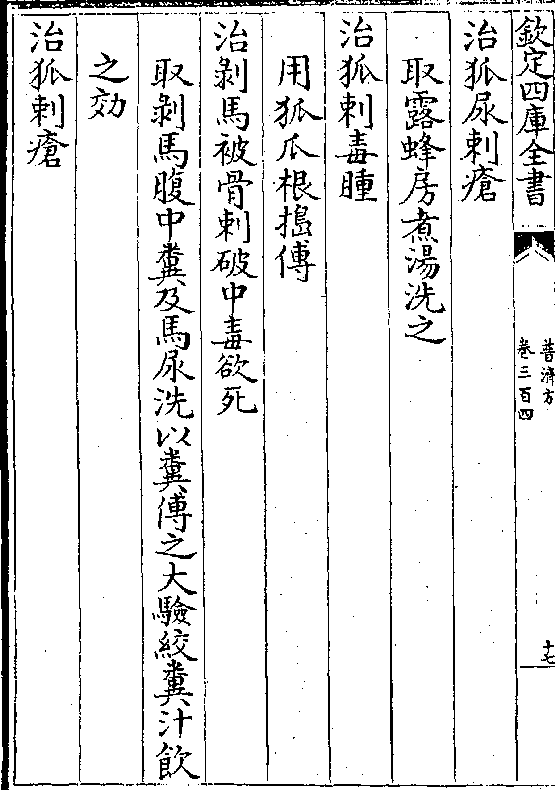 欽定四庫全書
普濟方
卷三百四
十七
治狐尿刺瘡
取露蜂房煮湯洗之
治狐刺毒腫
用狐瓜根搗傅
治剝馬被骨刺破中毒欲死
取剝馬腹中糞及馬尿洗以糞傅之大驗絞糞汁飲
之効
治狐刺瘡